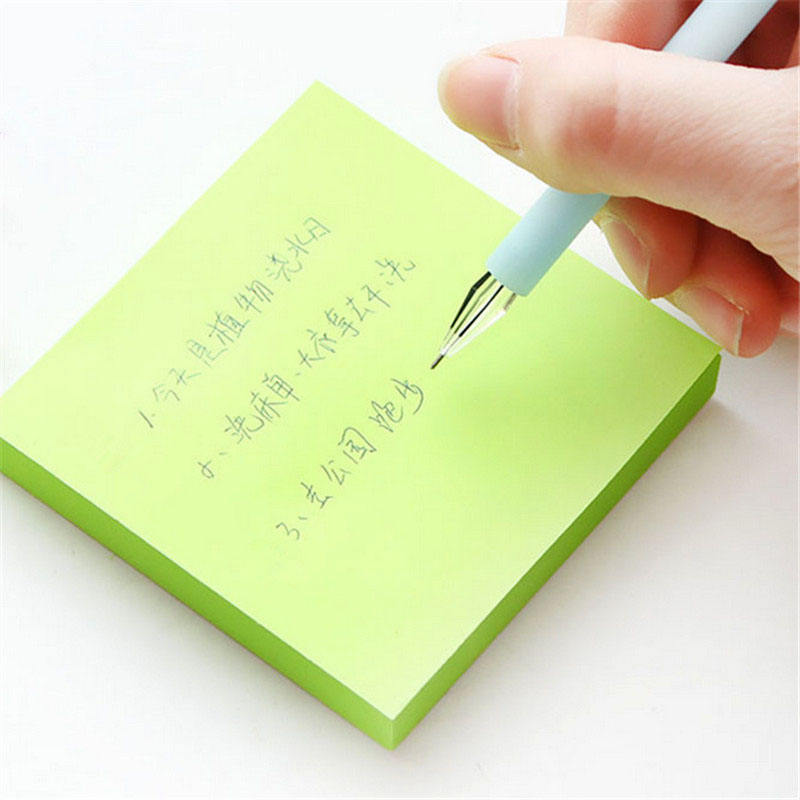 1、今天是植物浇水日
2、洗床单、大衣拿去干洗
3、去公园跑步